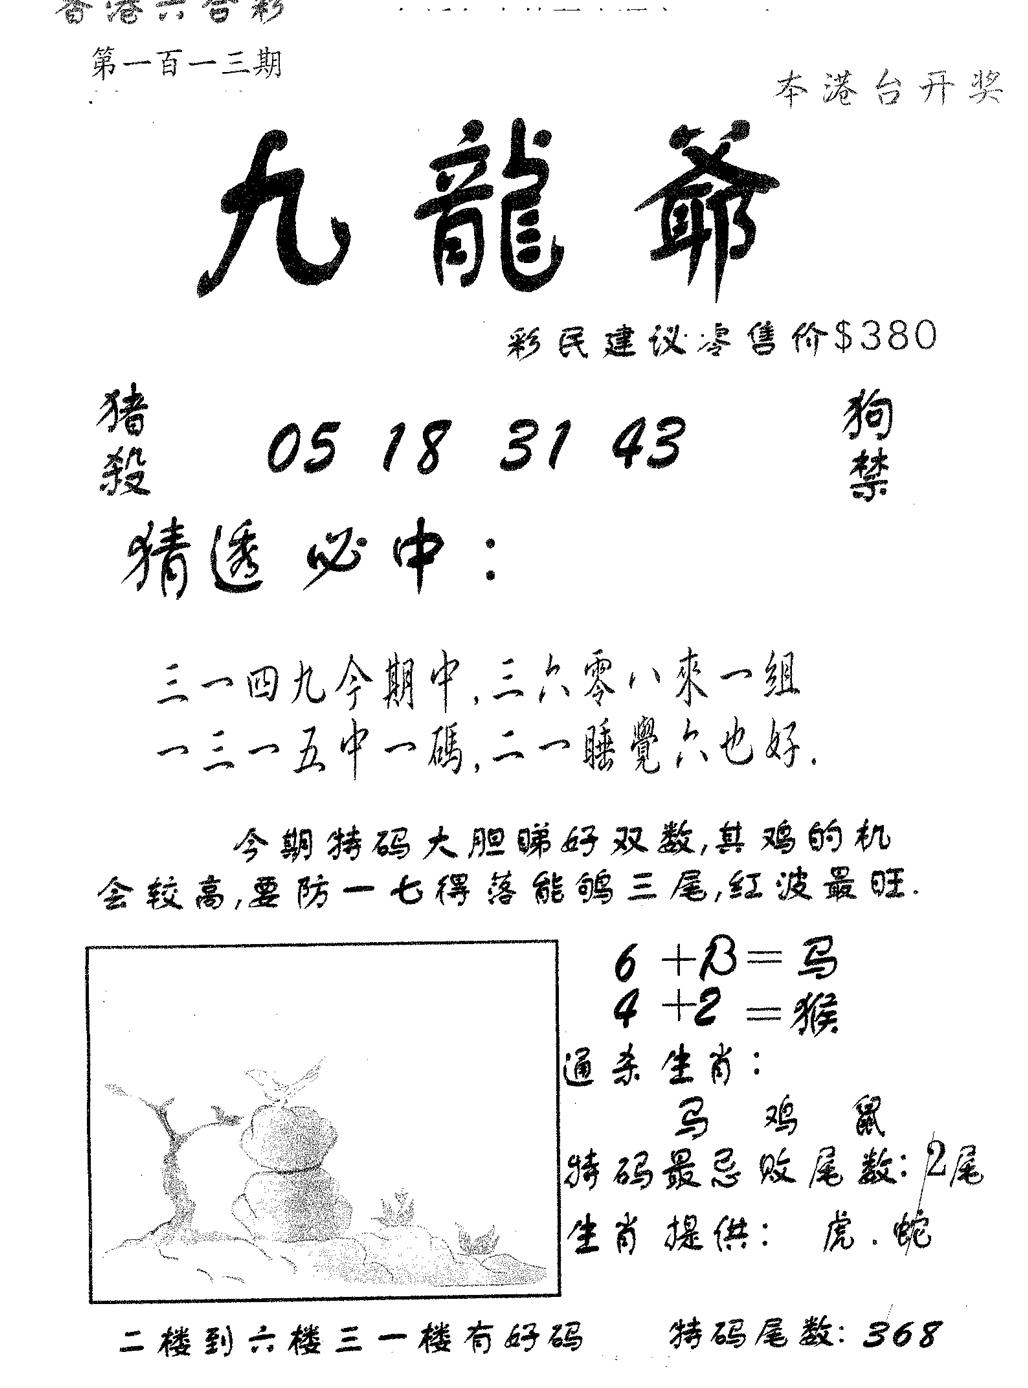 香港六合彩
第一百一三期
本港台开奖
九龍爺
彩民建议零售价$380
猪殺
05 18 31 43
狗禁
猜透必中：
三一四九今期中,三六零八來一組
一三一五中一碼,二一睡覺六也好.
今期特码大胆睇好双数,其鸡的机
会较高,要防一七得落能鸲三尾,红波最旺.
6+13=马
4+2=猴
通杀生肖：
马 鸡 鼠
特码最忌败尾数：2尾
生肖提供： 虎.蛇
二楼到六楼三一楼有好码
特码尾数：368